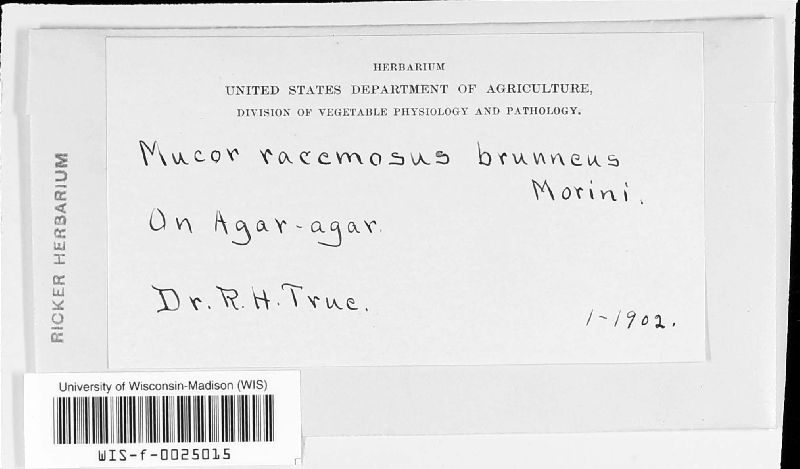 HERBARIUM
UNITED STATES DEPARTMENT OF AGRICULTURE,
DIVISION OF VEGETABLE PHYSIOLOGY AND PATHOLOGY.
Mucor racemosus brunneus
Morini.
On Agar-agar.
Dr. R. H. True.
1-1902.
RICKER HERBARIUM
University of Wisconsin-Madison (WIS)
WIS-f-0025015